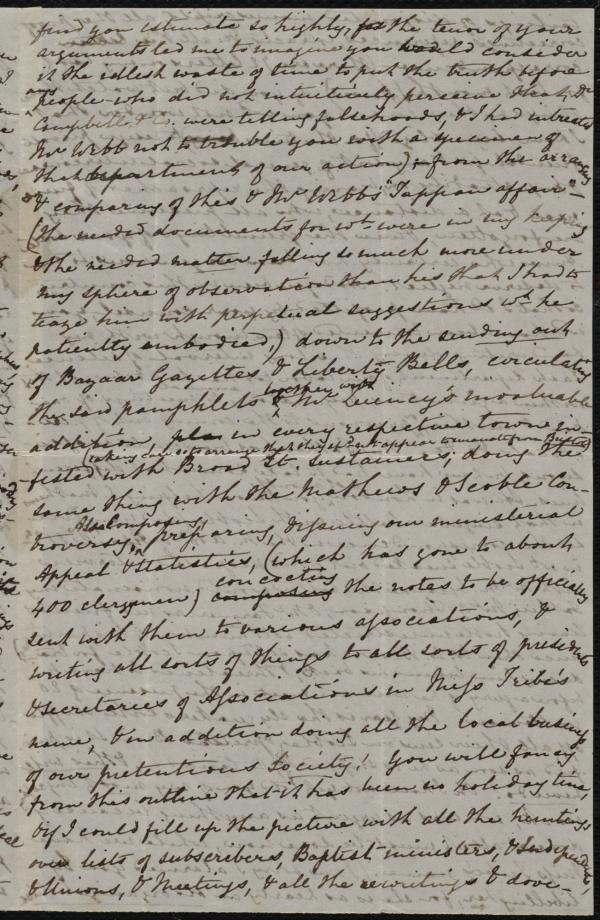 find you estimate so highly, for the tenor of your
arguments led me to imagine you would consider
it the idlest waste of time to put the truth before
people who did not intuitively perceive that Dr
Campbell & Co. were telling falsehoods, & I had intreated
Mr Webb not to trouble you with a specimen of
that department of our action); from the arranging
& comparing of this & Mr Webbs' Tappan affair -
(the needed documents for wh. were in my keeping
& the needed matter falling so much more under
my sphere of observation than his that I had to
teaze him with perpetual suggestions wh. he
patiently embodied,) down to the sending out
of Bazaar Gazettes & Liberty Bells, circulating
the said pamphlets together with Mr Quincy's invaluable
addition, in every respective town in-
(taking care so to arrange that they shd. not appear to emanate from Bristol)
fested with Broad St. sustainers; doing the
same thing with the Mathews & Scoble Con-
troversy,
also composing,
preparing, & issuing our ministerial
Appeal & Statistics, (which has gone to about
400 clergymen) concocting composing the notes to be officially
sent with them to various associations, &
writing all sorts of things to all sorts of presidents
& secretaries of Associations in Miss Tribe's
name, & in addition doing all the local business
of our pretentious Society! You will fancy
from this outline that it has been no holiday time,
& if I could fill up the picture with all the huntings
over lists of subscribers, Baptist ministers, & Independents,
& Unions, & Meetings, & all the rewritings & dove-